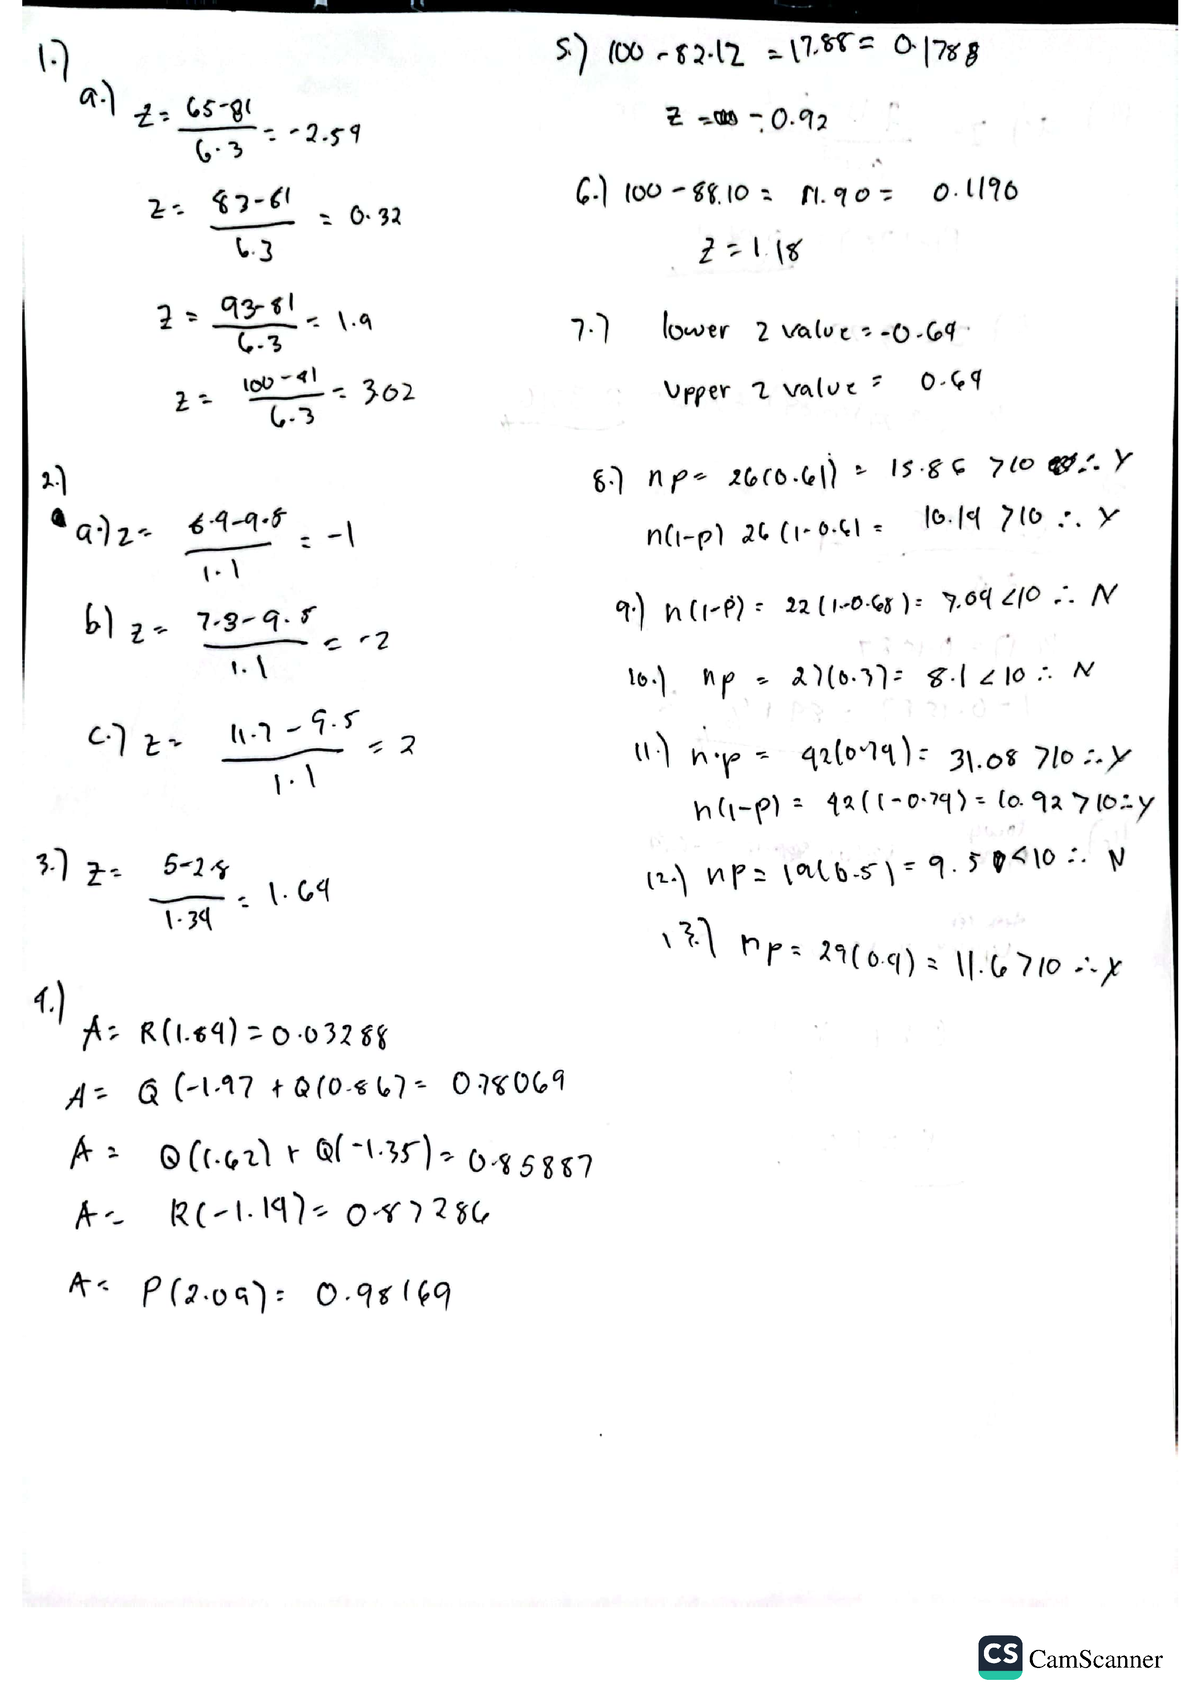 1.)
a.) z = 65-81 / 6.3 = -2.54
z = 83-81 / 6.3 = 0.32
z = 93-81 / 6.3 = 1.9
z = 100-81 / 6.3 = 3.02
2.)
a.) z = 8.4-9.5 / 1.1 = -1
b) z = 7.3-9.5 / 1.1 = -2
c.) z = 11.7-9.5 / 1.1 = 2
3.) z = 5-2.8 / 1.34 = 1.64
4.)
A = R(1.84) = 0.03288
A = Q(-1.97 + Q(0.86) = 0.78069
A = Q(1.62) + Q(-1.35) = 0.85887
A = R(-1.14) = 0.87286
A = P(2.09) = 0.98169
5.) 100 - 82.12 = 17.88 = 0.1788
z = -0.92
6.) 100 - 88.10 = 11.90 = 0.1190
z = 1.18
7.) lower z value = -0.64
Upper z value = 0.64
8.) np = 26(0.61) = 15.86 >10 ∴ Y
n(1-p) 26(1-0.61 = 10.14 >10 ∴ Y
9.) n(1-p) = 22(1-0.68) = 7.04 <10 ∴ N
10.) np = 27(0.3) = 8.1 < 10 ∴ N
11.) n·p = 42(0.74) = 31.08 >10 ∴ Y
n(1-p) = 42(1-0.74) = 10.92 > 10 ∴ Y
12.) np = 19(0.5) = 9.5 <10 ∴ N
13.) np = 29(0.4) = 11.6 >10 ∴ Y
CS CamScanner